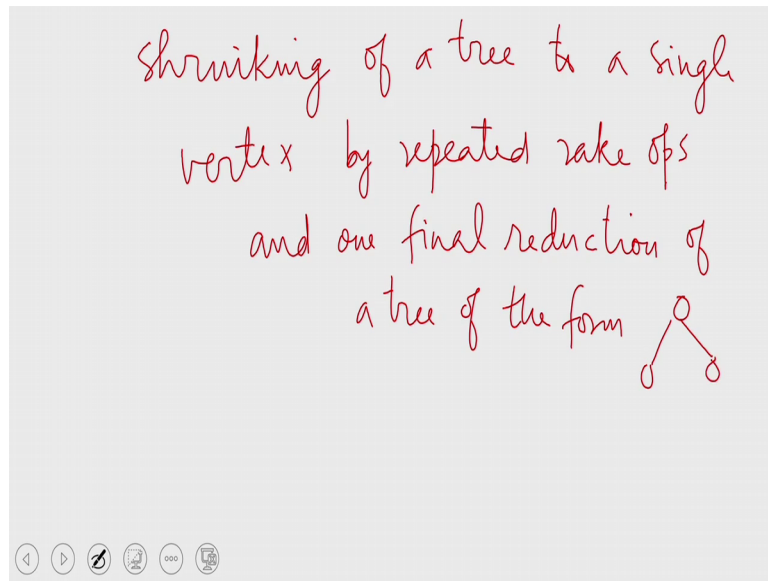 shruiking of a tree to a single
vertex by repeated rake ops
and one final reduction of
a tree of the form